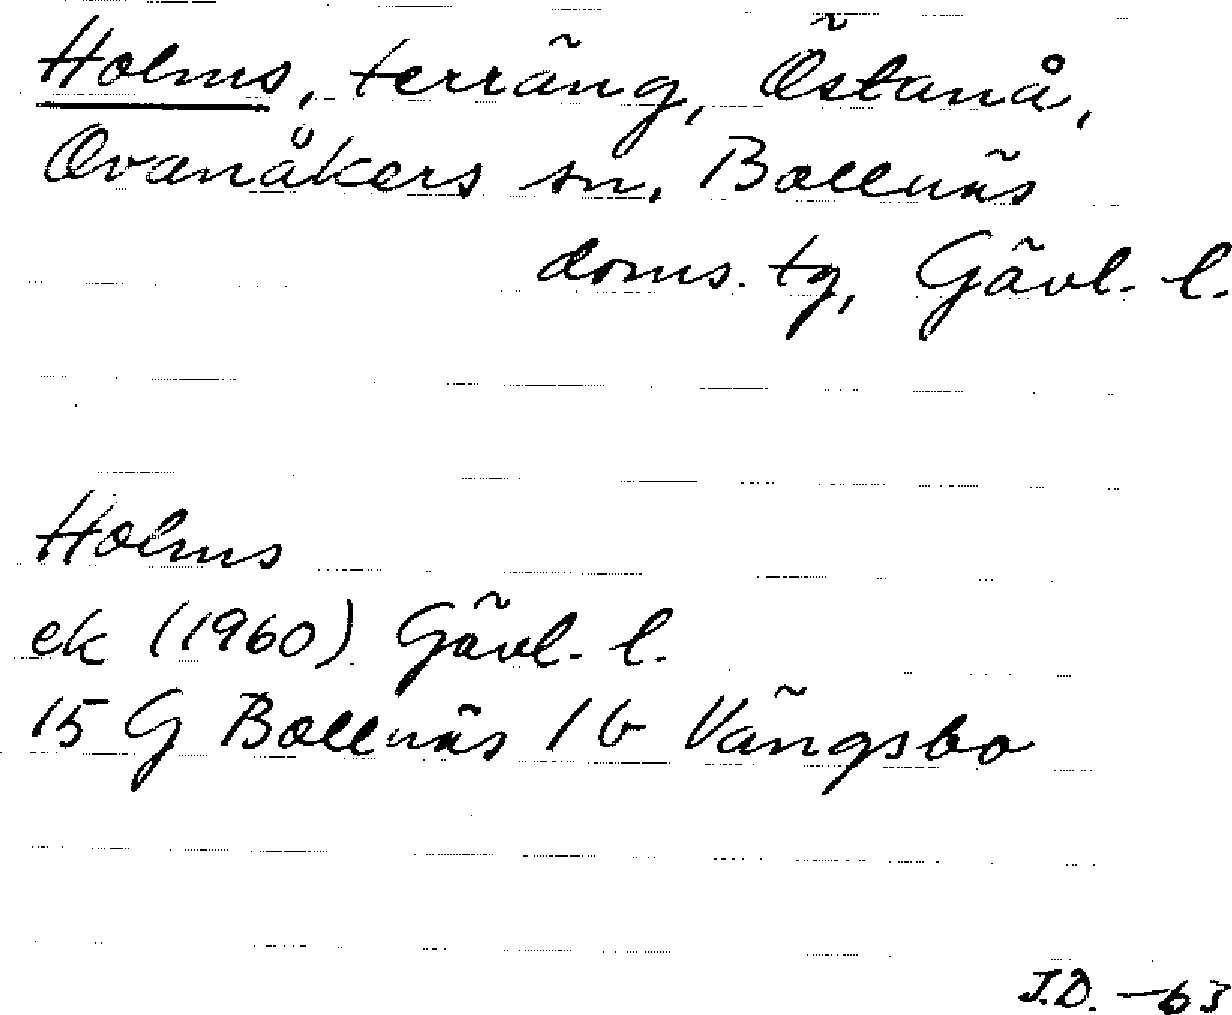 Holms, terräng, Östanå,
Ovanåkers sn, Bollnäs
doms. tg, Gävl. l.
Holms
ek (1960) Gävl. l.
15 G Bollnäs 1 b Vängsbo
J.D. -63